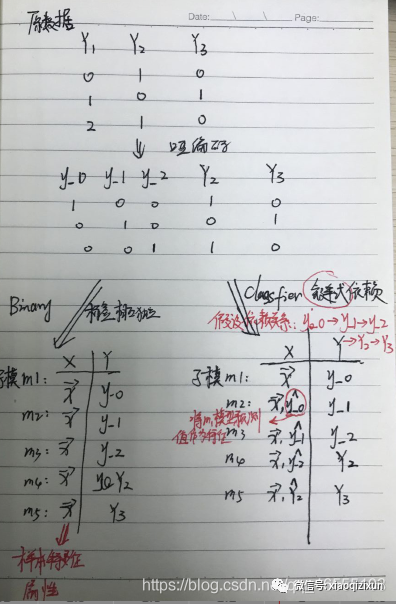 原数据
Date: Page:
Y1 Y2 Y3
0 1 0
1 0 1
2 1 0
哑编码
y_0 y_1 y_2 Y2 Y3
1 0 0 1 0
0 1 0 0 1
0 0 1 1 0
Binary 标签相互独立
X Y
子模m1: x→ y_0
m2: x→ y_1
m3: x→ y_2
m4: x→ Y2
m5: x→ Y3
样本特征
属性
Classfier 链式依赖
假设依赖关系: y_0→y_1→y_2
→Y2→Y3
X Y
子模m1: x→ y_0
m2: x→, ŷ_0 y_1
m3 x→, ŷ_1 y_2
m4 x→, ŷ_2 Y2
m5 x→, Ŷ2 Y3
将m1模型预测
值作为特征
https://blog.csdn.net/
微信号: xiaoqizixun